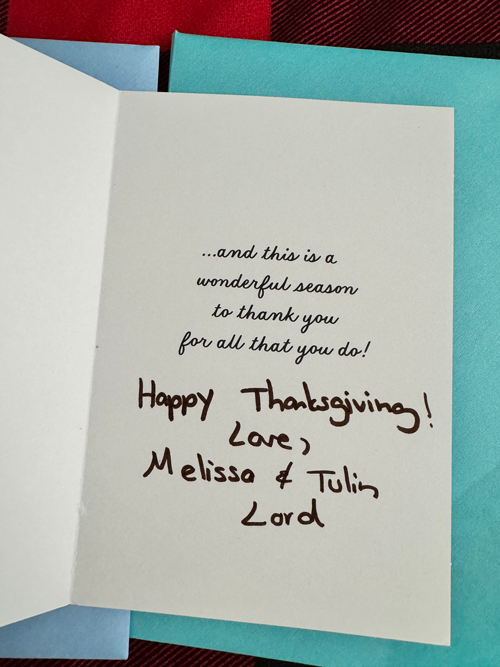 ...and this is a
wonderful season
to thank you
for all that you do!
Happy Thanksgiving!
Love,
Melissa & Tulin
Lord